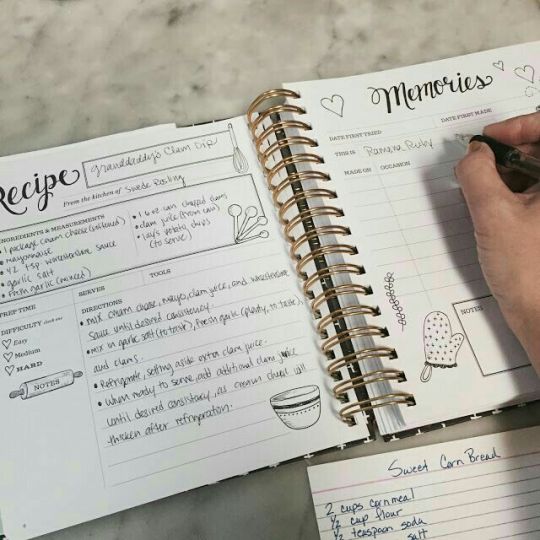 Recipe
Granddaddy's Clam Dip
From the kitchen of Swede Rasling
INGREDIENTS & MEASUREMENTS
1 package cream cheese (softened)
• mayonnaise
• 1/2 tsp worcestershire sauce
• garlic salt
• Fresh garlic (minced)
• 1 6oz can chopped clams
• clam juice (from can)
• lay's potato chips
(to serve)
PREP TIME
SERVES
TOOLS
DIFFICULTY
Easy
Medium
HARD
NOTES
DIRECTIONS
• Mix cream cheese, mayo, clam juice, and worcestershire
sauce until desired consistency.
• Mix in garlic salt (to taste), fresh garlic (plenty, to taste),
and clams.
• Refrigerate, setting aside extra clam juice.
• When ready to serve, add additional clam juice
until desired consistency, as cream cheese will
thicken after refrigeration.
Memories
DATE FIRST TRIED
DATE FIRST MADE
THIS IS Ramona Ruby
MADE ON
OCCASION
NOTES
Sweet Corn Bread
2 cups cornmeal
1/2 cup flour
1/2 teaspoon soda
salt